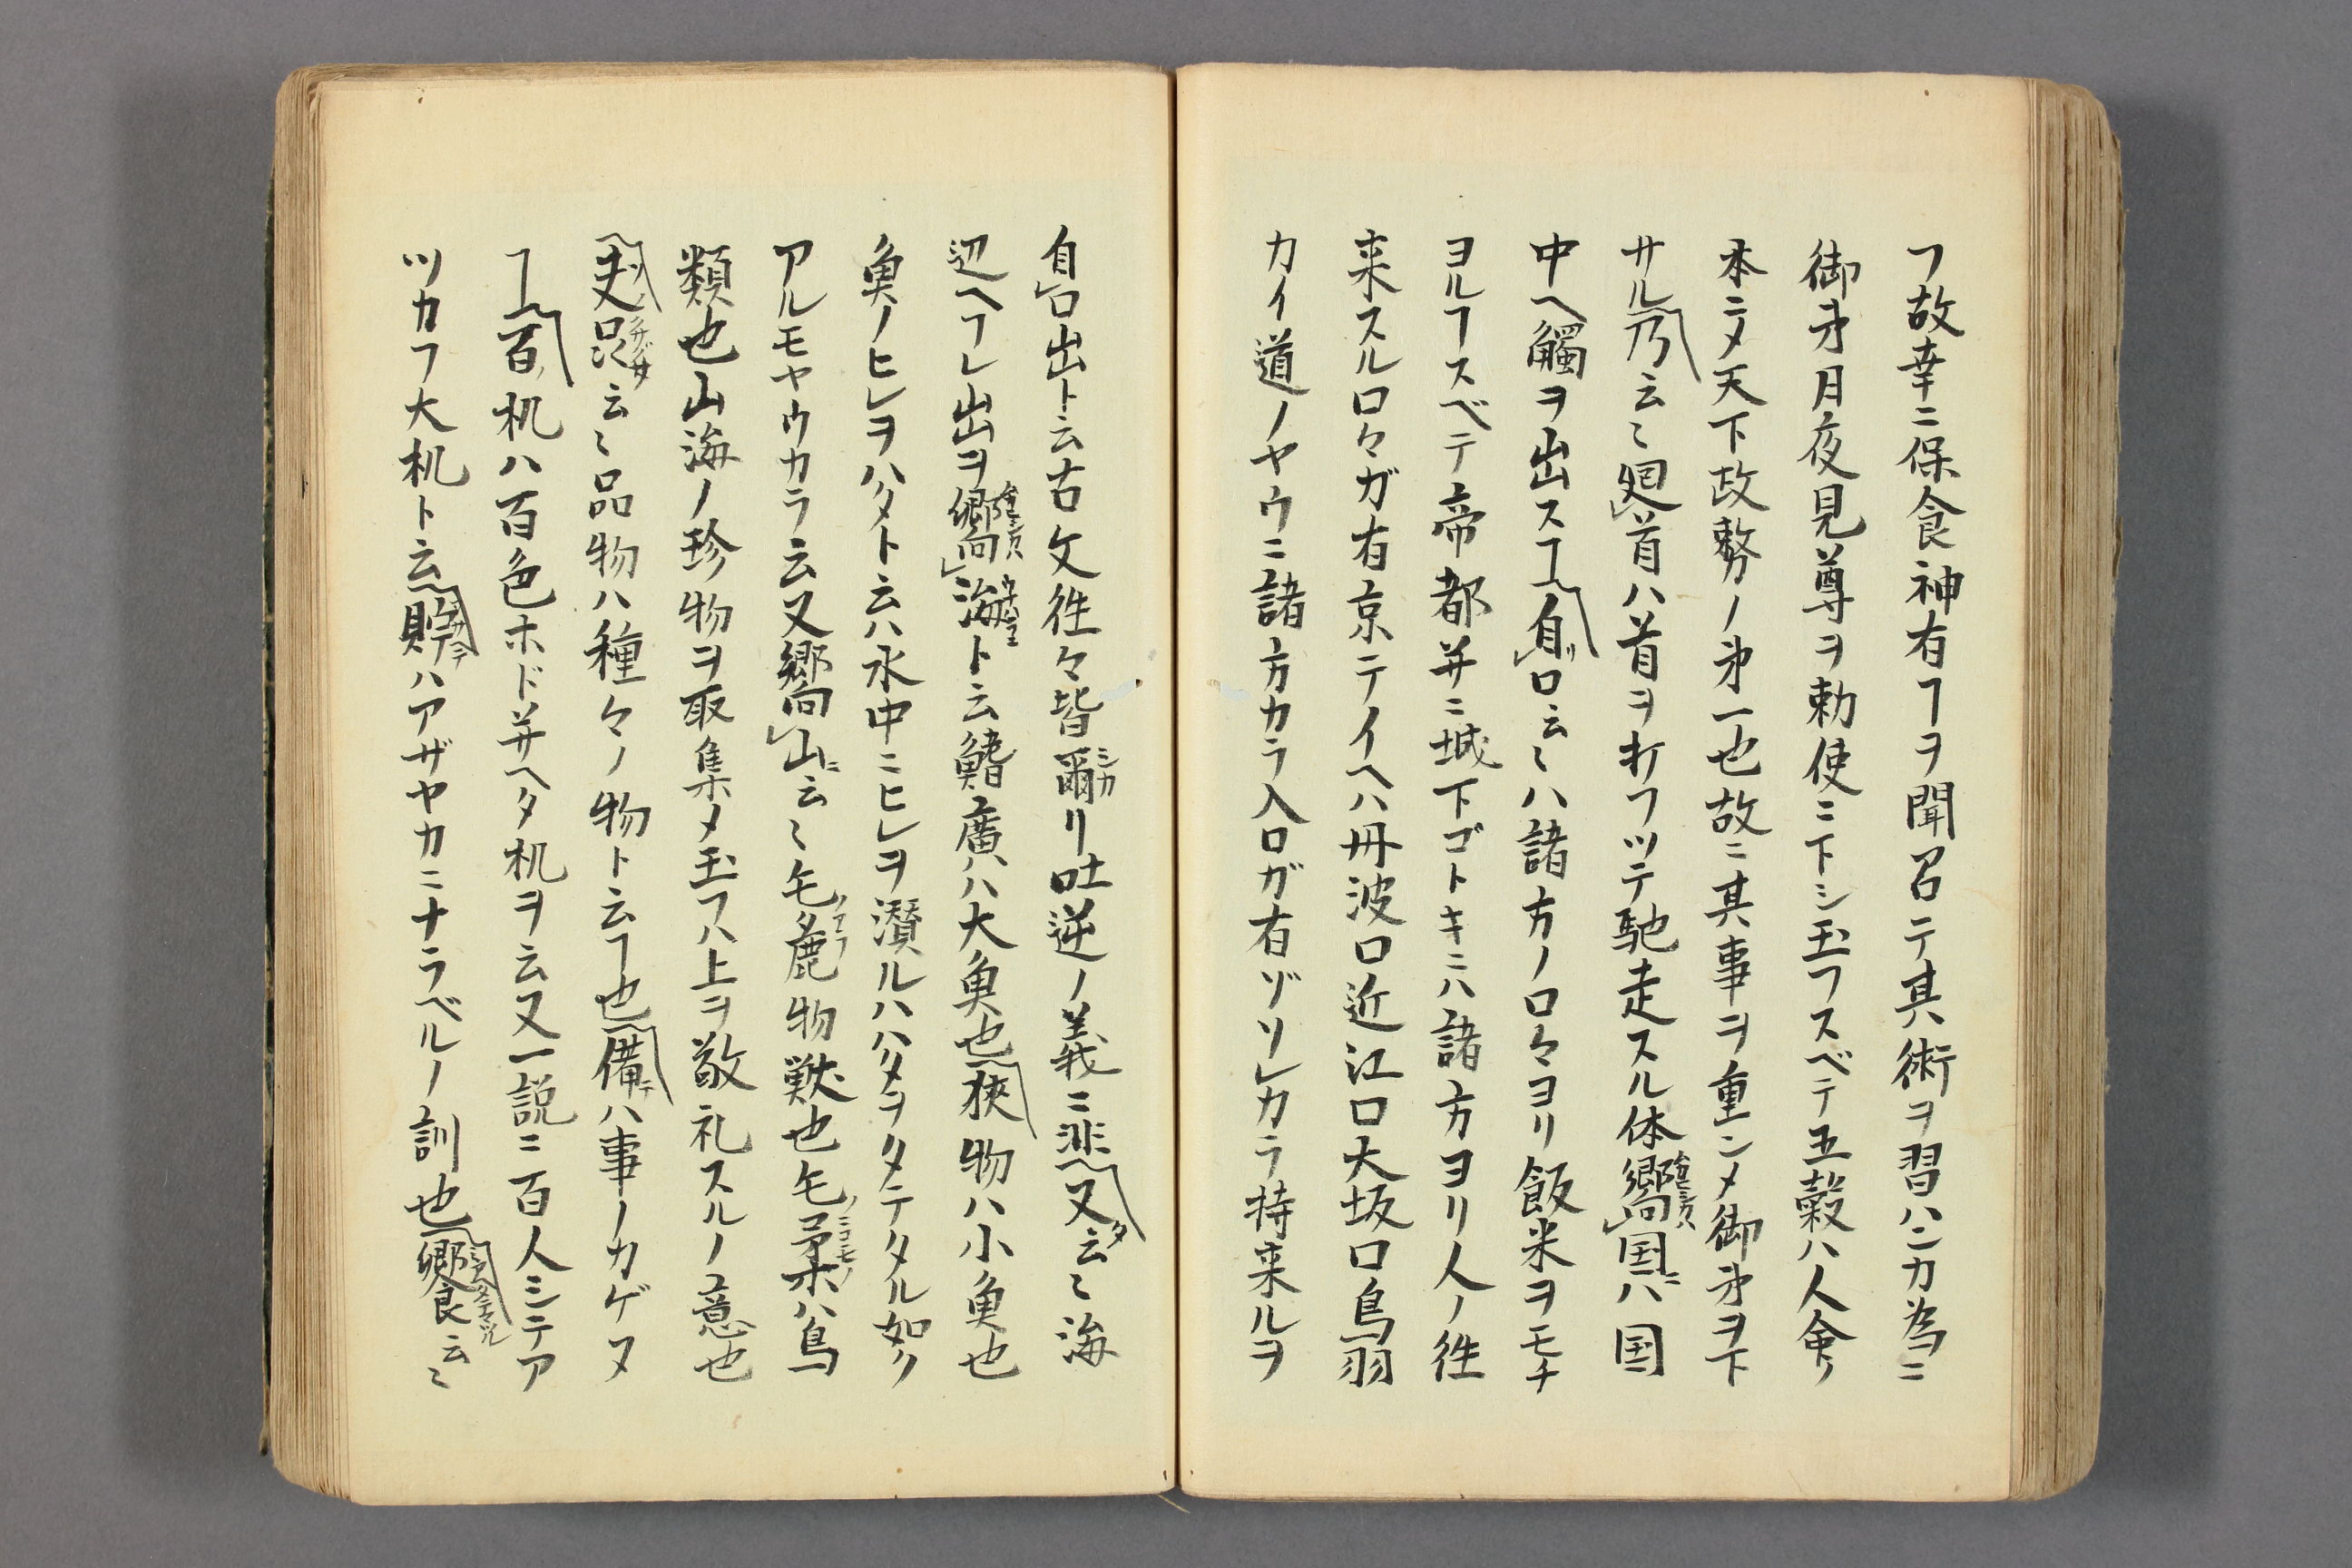 フ故幸ニ保食神有ヿヲ聞召テ其術ヲ習ハンカ為ニ
御弟月夜見尊ヲ勅使ニ下シ玉フスベテ五穀ハ人命ノ
本ニメ天下政務ノ第一也故ニ其事ヲ重ンメ御弟ヲ下
サル乃云〻廻首ハ首ヲ打フツテ馳走スル体嚮国ニハ国
中ヘ觸ヲ出スヿ自口云〻ハ諸方ノ口々ヨリ飯米ヲモチ
ヨルヿスベテ帝都并ニ城下ゴトキニハ諸方ヨリ人ノ往
来スル口々ガ有京テイヘハ丹波口近江口大坂口鳥羽
カイ道ノヤウニ諸方カラ入口ガ有ゾソレカラ持来ルヲ
自口出ト云古文往々皆爾リ吐逆ノ義ニ非又云〻海
辺ヘフレ出ヲ嚮海ト云鰭廣ハ大魚也狹物ハ小魚也
魚ノヒレヲハタト云ハ水中ニヒレヲ濳ルハハタヲタテタル如ク
アルモヤウカラ云又嚮山ニ云〻毛麁物獣也毛柔ハ鳥
類也山海ノ珍物ヲ取集メ玉フハ上ヲ敬礼スルノ意也
夫品云〻品物ハ種々ノ物ト云ヿ也備ハ事ノカゲヌ
ヿ百机ハ百色ホド并ヘタ机ヲ云又一説ニ百人シテア
ツカフ大机ト云貯ハアザヤカニナラベルノ訓也饗云〻